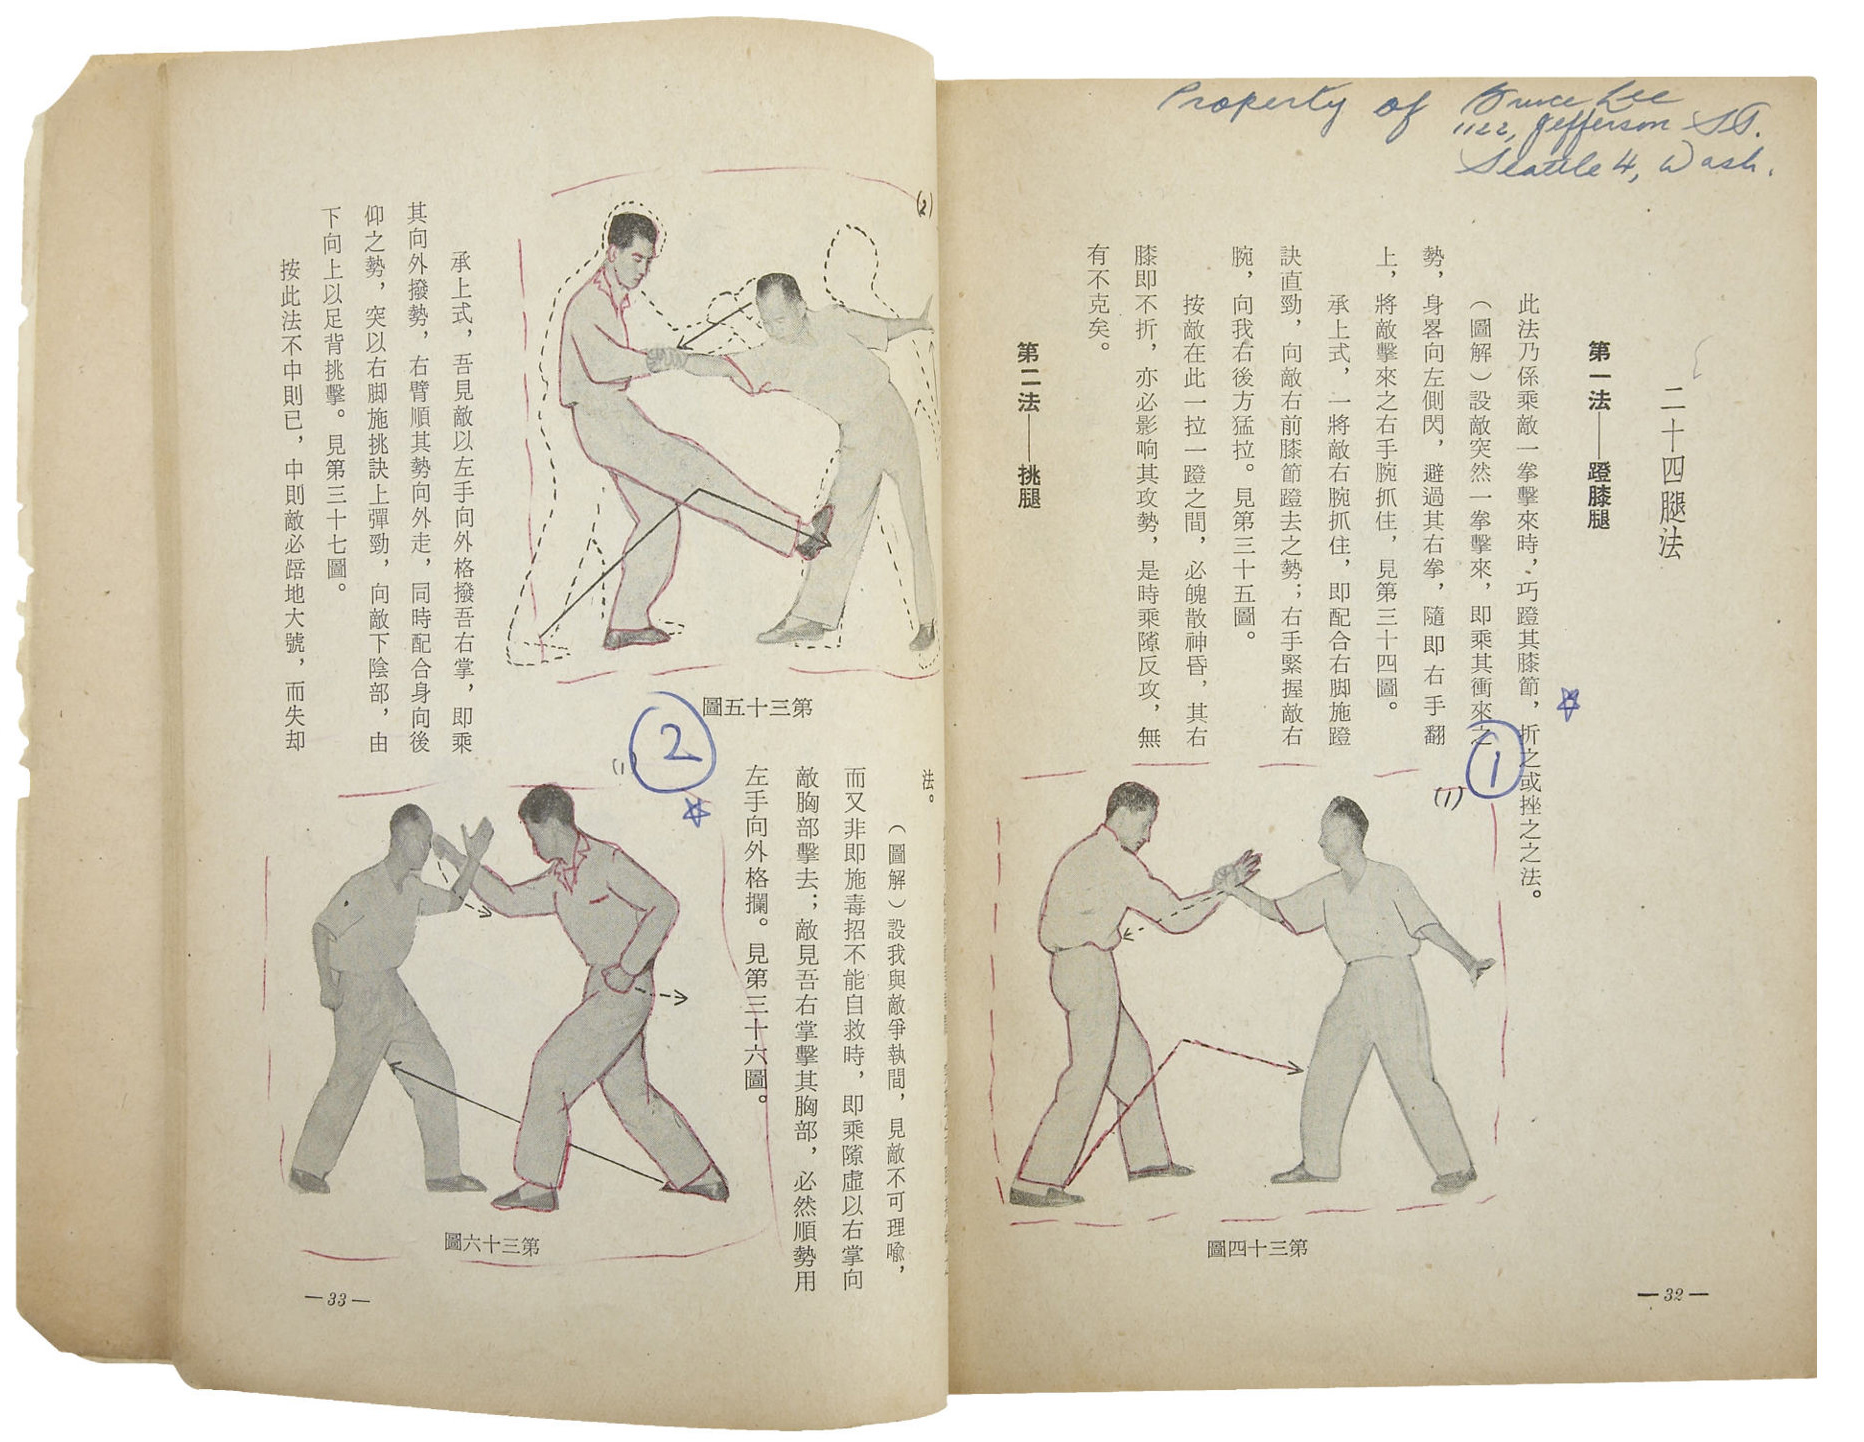 Property of Bruce Lee
1122, Jefferson ST.
Seattle 4, Wash.
二十四腿法
第一法——蹬膝腿
此法乃係乘敵一拳擊來時，巧蹬其膝節，折之或挫之之法。
（圖解）設敵突然一拳擊來，即乘其衝來之
勢，身畧向左側閃，避過其右拳，隨即右手翻
上，將敵擊來之右手腕抓住，見第三十四圖。
承上式，一將敵右腕抓住，即配合右脚施蹬
訣直勁，向敵右前膝節蹬去之勢；右手緊握敵右
腕，向我右後方猛拉。見第三十五圖。
按敵在此一拉一蹬之間，必魄散神昏，其右
膝即不折，亦必影响其攻勢，是時乘隙反攻，無
有不克矣。
第二法——挑腿
1
(1)
圖四十三第
—32—
法。
（圖解）設我與敵爭執間，見敵不可理喻，
而又非即施毒招不能自救時，即乘隙虛以右掌向
敵胸部擊去；敵見吾右掌擊其胸部，必然順勢用
左手向外格攔。見第三十六圖。
(2)
圖五十三第
2
(1)
圖六十三第
承上式，吾見敵以左手向外格撥吾右掌，即乘
其向外撥勢，右臂順其勢向外走，同時配合身向後
仰之勢，突以右脚施挑訣上彈勁，向敵下陰部，由
下向上以足背挑擊。見第三十七圖。
按此法不中則已，中則敵必踣地大號，而失却
—33—